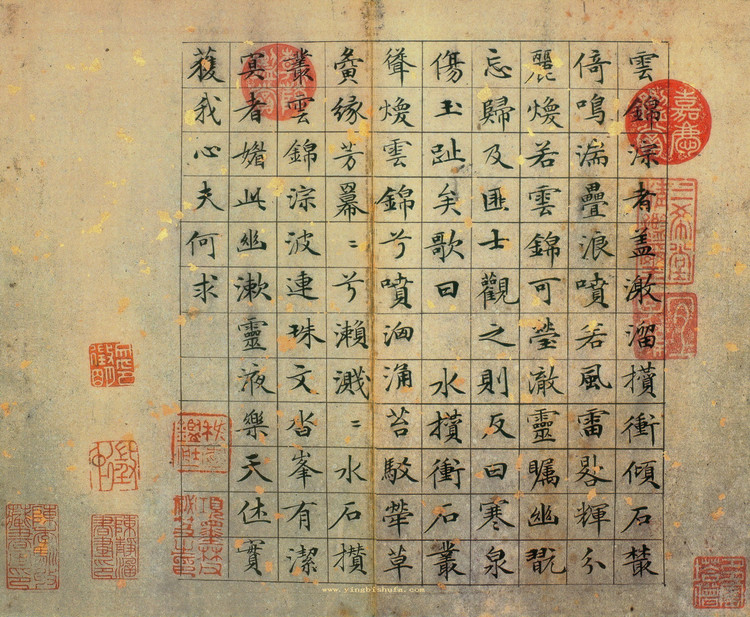 雲錦淙者盖激溜攢衝傾石藂
倚鳴湍疊浪噴若風雷畧輝分
麗煥若雲錦可瑩澈靈矚幽翫
忘歸及匪士觀之則反曰寒泉
傷玉趾矣歌曰 水攢衝石叢
聳煥雲錦兮噴洶涌苔駁犖草
夤緣芳冪〻兮瀨濺〻水石攢
叢雲錦淙波連珠文沓峯有潔
冥者媚此幽漱靈液樂天休實
獲我心夫何求
www.yingbishufa.com